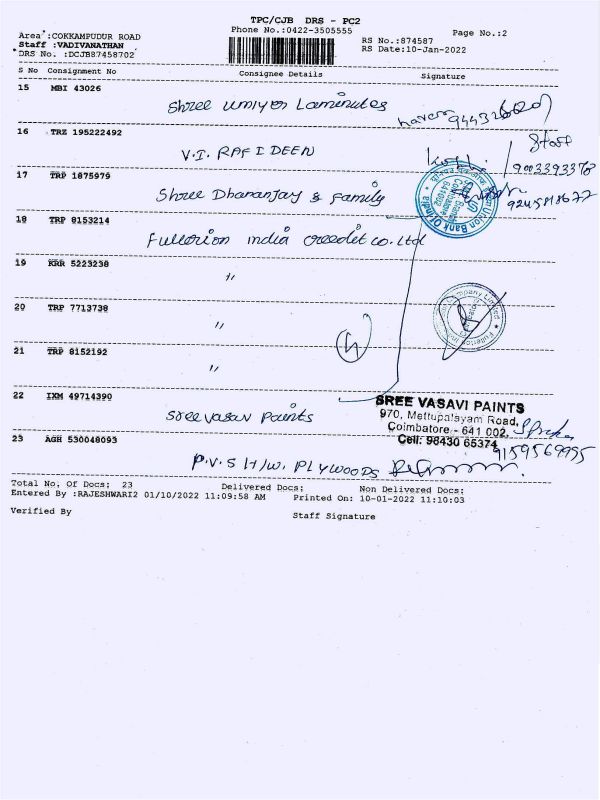 TPC/CJB DRS - PC2
Phone No.:0422-3505555
Page No.:2
Area :COKKAMPUDUR ROAD
Staff :VADIVANATHAN
DRS No. :DCJB87458702
RS No.:874587
RS Date:10-Jan-2022
S No Consignment No Consignee Details Signature
15 MBI 43026
Shree umiya Laminates
16 TRZ 195222492
V.I. RAFIDEEN
Staff
9003393378
17 TRP 1875979
Shree Dhananjay & family
Union Bank Of India
18 TRP 8153214
Fullerion india creedit co. Ltd
19 KRR 5223238
"
20 TRP 7713738
"
21 TRP 8152192
"
22 IXM 49714390
Sree vasavi Paints
SREE VASAVI PAINTS
970, Mettupalayam Road,
Coimbatore - 641 002.
Cell: 98430 65374
9159569995
23 AGH 530048093
P.V.S H/W. PLYWOODS
Total No. Of Docs: 23 Delivered Docs: Non Delivered Docs:
Entered By :RAJESHWARI2 01/10/2022 11:09:58 AM Printed On: 10-01-2022 11:10:03
Verified By Staff Signature